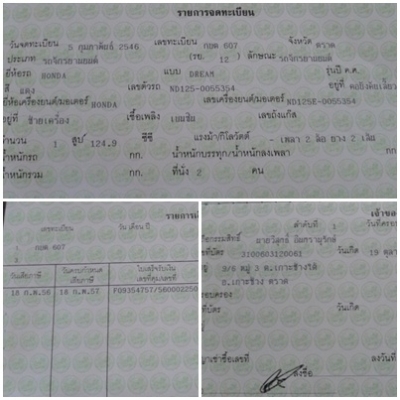 รายการจดทะเบียน
วันจดทะเบียน 5 กุมภาพันธ์ 2546 เลขทะเบียน กยต 607 จังหวัด ตราด
ประเภท รถจักรยานยนต์ (รย. 12) ลักษณะ รถจักรยานยนต์
ยี่ห้อรถ HONDA แบบ DREAM รุ่นปี ค.ศ.
สี แดง เลขตัวรถ ND125-0055354 อยู่ที่ คอถังคอเลี้ยว
ยี่ห้อเครื่องยนต์/มอเตอร์ HONDA เลขเครื่องยนต์/มอเตอร์ ND125E-0055354
อยู่ที่ ซ้ายเครื่อง เชื้อเพลิง เบนซิน เลขถังแก๊ส
จำนวน 1 สูบ 124.9 ซีซี แรงม้า/กิโลวัตต์ - เพลา 2 ล้อ ยาง 2 เส้น
น้ำหนักรถ กก. น้ำหนักบรรทุก/น้ำหนักลงเพลา กก.
น้ำหนักรวม กก. ที่นั่ง 2 คน
เลขทะเบียน วัน เดือน ปี
1 กยต 607
2
วันเสียภาษี วันครบกำหนดเสียภาษี ใบเสร็จรับเงิน
18 ก.พ.56 18 ก.พ.57 F09354757/560002250
เจ้าของ
ลำดับที่ 1
วันเกิด 19 ตุลา
3/6 หมู่ 3 ต.เกาะช้างใต้
อ.เกาะช้าง ตราด
วันเกิด
ลงวันที่
ลงชื่อ